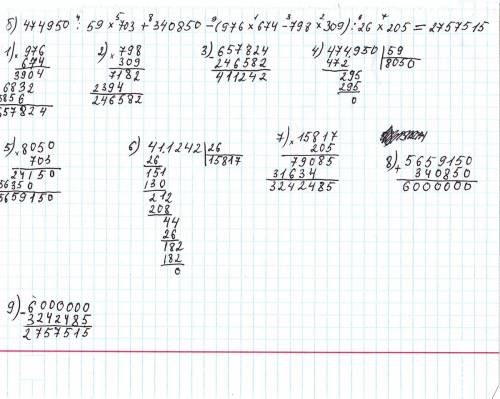 5) 474950 : 59 × 703 + 340850 - (976 × 674 - 798 × 309) : 26 × 205 = 2757515
1) × 976
674
3904
6832
5856
657824
2) × 798
309
7182
2394
246582
3) 657824
246582
411242
4) 474950 | 59
472 8050
295
295
0
5) × 8050
703
24150
56350
5659150
6) 411242 | 26
26 15817
151
130
212
208
44
26
182
182
0
7) × 15817
205
79085
31634
3242485
8) + 5659150
340850
6000000
9) - 6000000
3242485
2757515